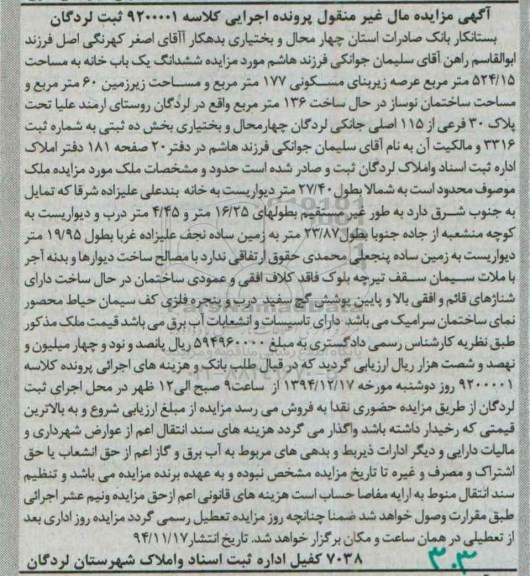 آگهی مزایده مال غیر منقول پرونده اجرایی کلاسه ۹۲۰۰۰۰۱ ثبت لردگان
بستانکار بانک صادرات استان چهار محال و بختیاری بدهکار آآقای اصغر کهرنگی اصل فرزند
ابوالقاسم راهن آقای سلیمان جوانکی فرزند هاشم مورد مزایده ششدانگ یک باب خانه به مساحت
۵۲۴/۱۵ متر مربع عرصه زیربنای مسکونی ۱۷۷ متر مربع و مساحت زیرزمین ۶۰ متر مربع و
مساحت ساختمان نوساز در حال ساخت ۱۳۶ متر مربع واقع در لردگان روستای ارمند علیا تحت
پلاک ۳۰ فرعی از ۱۱۵ اصلی جانکی لردگان چهارمحال و بختیاری بخش ده ثبتی به شماره ثبت
۳۳۱۶ و مالکیت آن به نام آقای سلیمان جوانکی فرزند هاشم در دفتر ۲۰ صفحه ۱۸۱ دفتر املاک
اداره ثبت اسناد واملاک لردگان ثبت و صادر شده است حدود و مشخصات ملک مورد مزایده ملک
موصوف محدود است به شمالا بطول ۲۷/۴۰ متر دیواریست به خانه بندعلی علیزاده شرقا که تمایل
به جنوب شرق دارد به طور غیر مستقیم بطولهای ۱۶/۲۵ متر و ۴/۴۵ متر درب و دیواریست به
کوچه منشعبه از جاده جنوبا بطول ۲۳/۸۷ متر به زمین ساده نجف علیزاده غربا بطول ۱۹/۹۵ متر
دیواریست به زمین ساده پنجعلی محمدی حقوق ارتفاقی ندارد با مصالح ساخت دیوارها و بدنه آجر
با ملات سیمان سقف تیرچه بلوک فاقد کلاف افقی و عمودی ساختمان در حال ساخت دارای
شناژهای قائم و افقی بالا و پایین پوشش گچ سفید درب و پنجره فلزی کف سیمان حیاط محصور
نمای ساختمان سرامیک می باشد دارای تاسیسات و انشعابات آب برق می باشد قیمت ملک مذکور
طبق نظریه کارشناس رسمی دادگستری به مبلغ ۵۹۴۹۶۰۰۰۰ ریال پانصد و نود و چهار میلیون و
نهصد و شصت هزار ریال ارزیابی گردید که در قبال طلب بانک و هزینه های اجرائی پرونده کلاسه
۹۲۰۰۰۰۱ روز دوشنبه مورخه ۱۳۹۴/۱۲/۱۷ از ساعت۹ صبح الی۱۲ ظهر در محل اجرای ثبت
لردگان از طریق مزایده حضوری نقدا به فروش می رسد مزایده از مبلغ ارزیابی شروع و به بالاترین
قیمتی که خریدار داشته باشد واگذار می گردد هزینه های سند انتقال اعم از عوارض شهرداری و
مالیات دارایی و دیگر ادارات ذیربط و بدهی های مربوط به آب برق و گاز اعم از حق انشعاب یا حق
اشتراک و مصرف و غیره تا تاریخ مزایده مشخص نبوده و به عهده برنده مزایده می باشد و تنظیم
سند انتقال منوط به ارایه مفاصا حساب است هزینه های قانونی اعم ازحق مزایده ونیم عشر اجرائی
طبق مقررات وصول خواهد شد ضمنا چنانچه روز مزایده تعطیل رسمی گردد مزایده روز اداری بعد
از تعطیلی در همان ساعت و مکان برگزار خواهد شد. تاریخ انتشار۹۴/۱۱/۱۷
۷۰۳۸ کفیل اداره ثبت اسناد واملاک شهرستان لردگان
۳۰۳